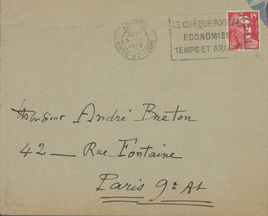 LE CHÈQUE POSTAL
ECONOMISE
TEMPS ET AR
Monsieur André Breton
42 — Rue Fontaine
Paris 9e At